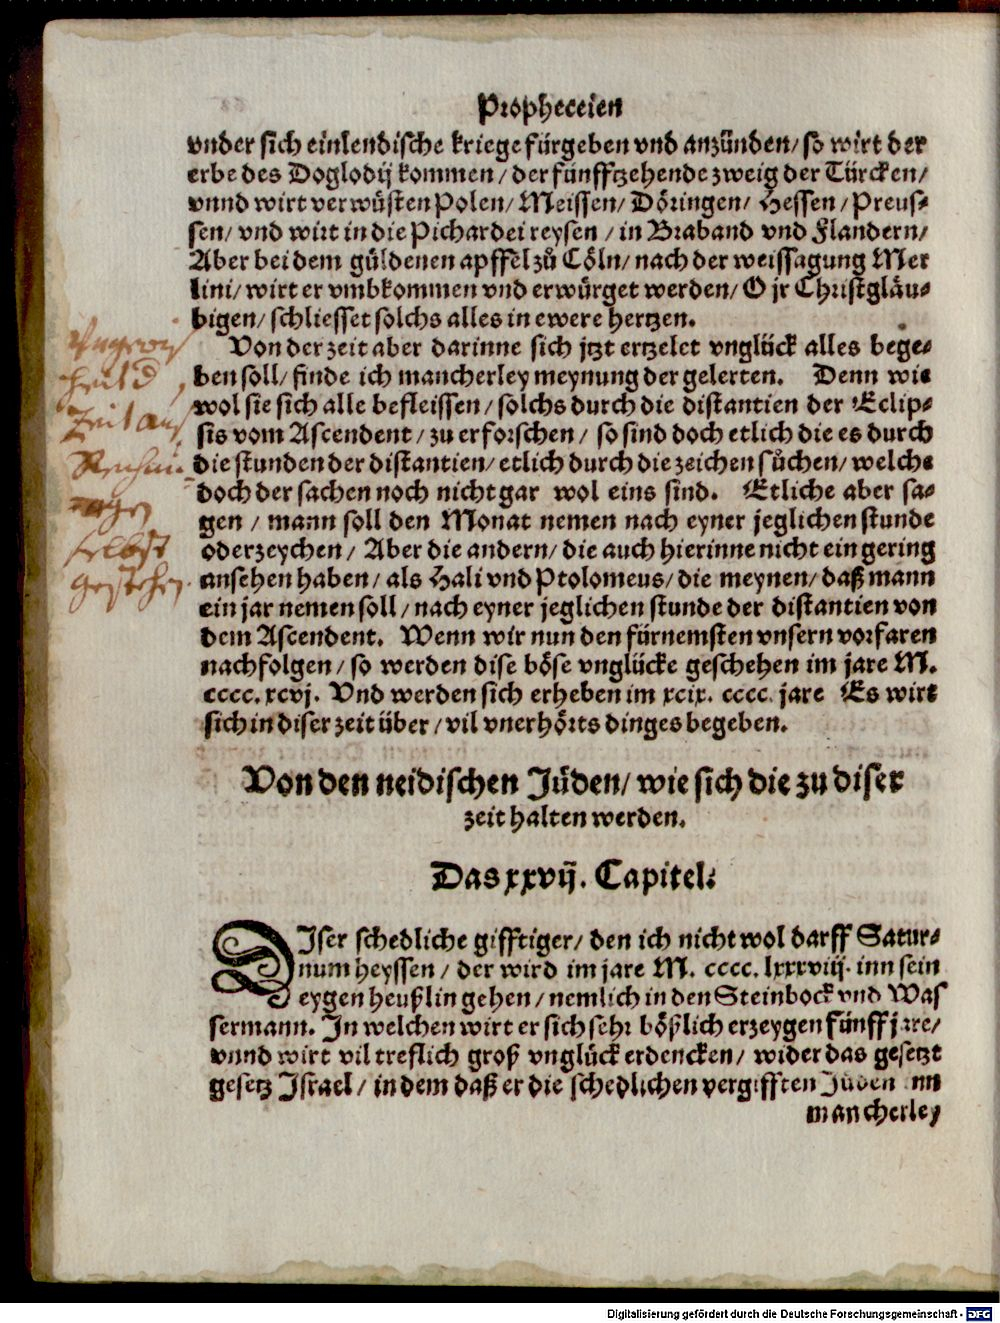 Propheceien
vnder sich einlendische kriege fürgeben vnd anzünden/ so wirt der
erbe des Doglodij kommen/ der fünfftzehende zweig der Türcken/
vnnd wirt verwüsten Polen/ Meissen/ Döringen/ Hessen/ Preus⸗
sen/ vnd wirt in die Pichardei reysen/ in Braband vnd Flandern/
Aber bei dem güldenen apffel zů Cöln/ nach der weissagung Mer
lini/ wirt er vmbkommen vnd erwürget werden/ O jr Christgläu⸗
bigen/ schliesset solchs alles in ewere hertzen.
Von der zeit aber darinne sich jtzt ertzelet vnglück alles bege⸗
ben soll/ finde ich mancherley meynung der gelerten. Denn wie
wol sie sich alle befleissen/ solchs durch die distantien der Eclip⸗
sis vom Ascendent/ zu erforschen/ so sind doch etlich die es durch
die stunden der distantien/ etlich durch die zeichen sůchen/ welche
doch der sachen noch nicht gar wol eins sind. Etliche aber sa⸗
gen/ mann soll den Monat nemen nach eyner jeglichen stunde
oder zeychen/ Aber die andern/ die auch hierinne nicht ein gering
ansehen haben/ als Hali vnd Ptolomeus/ die meynen/ daß mann
ein jar nemen soll/ nach eyner jeglichen stunde der distantien von
dem Ascendent. Wenn wir nun den fürnemsten vnsern vorfaren
nachfolgen/ so werden dise böse vnglücke geschehen im jare M.
cccc. xcvj. Vnd werden sich erheben im xcix. cccc. jare Es wirt
sich in diser zeit über/ vil vnerhörts dinges begeben.
zeit auß
selbst
gestehen.
Von den neidischen Jüden/ wie sich die zu diser
zeit halten werden.
Das xxvij. Capitel.
DIser schedliche gifftiger/ den ich nicht wol darff Satur⸗
num heyssen/ der wird im jare M. cccc. lxxxviij. inn sein
eygen heußlin gehen/ nemlich in den Steinbock vnd Was
sermann. In welchen wirt er sich sehr bößlich erzeygen fünff jare/
vnnd wirt vil treflich groß vnglück erdencken/ wider das gesetzt
gesetz Israel/ in dem daß er die schedlichen vergifften Jüden inn
mancherley
Digitalisierung gefördert durch die Deutsche Forschungsgemeinschaft - DFG